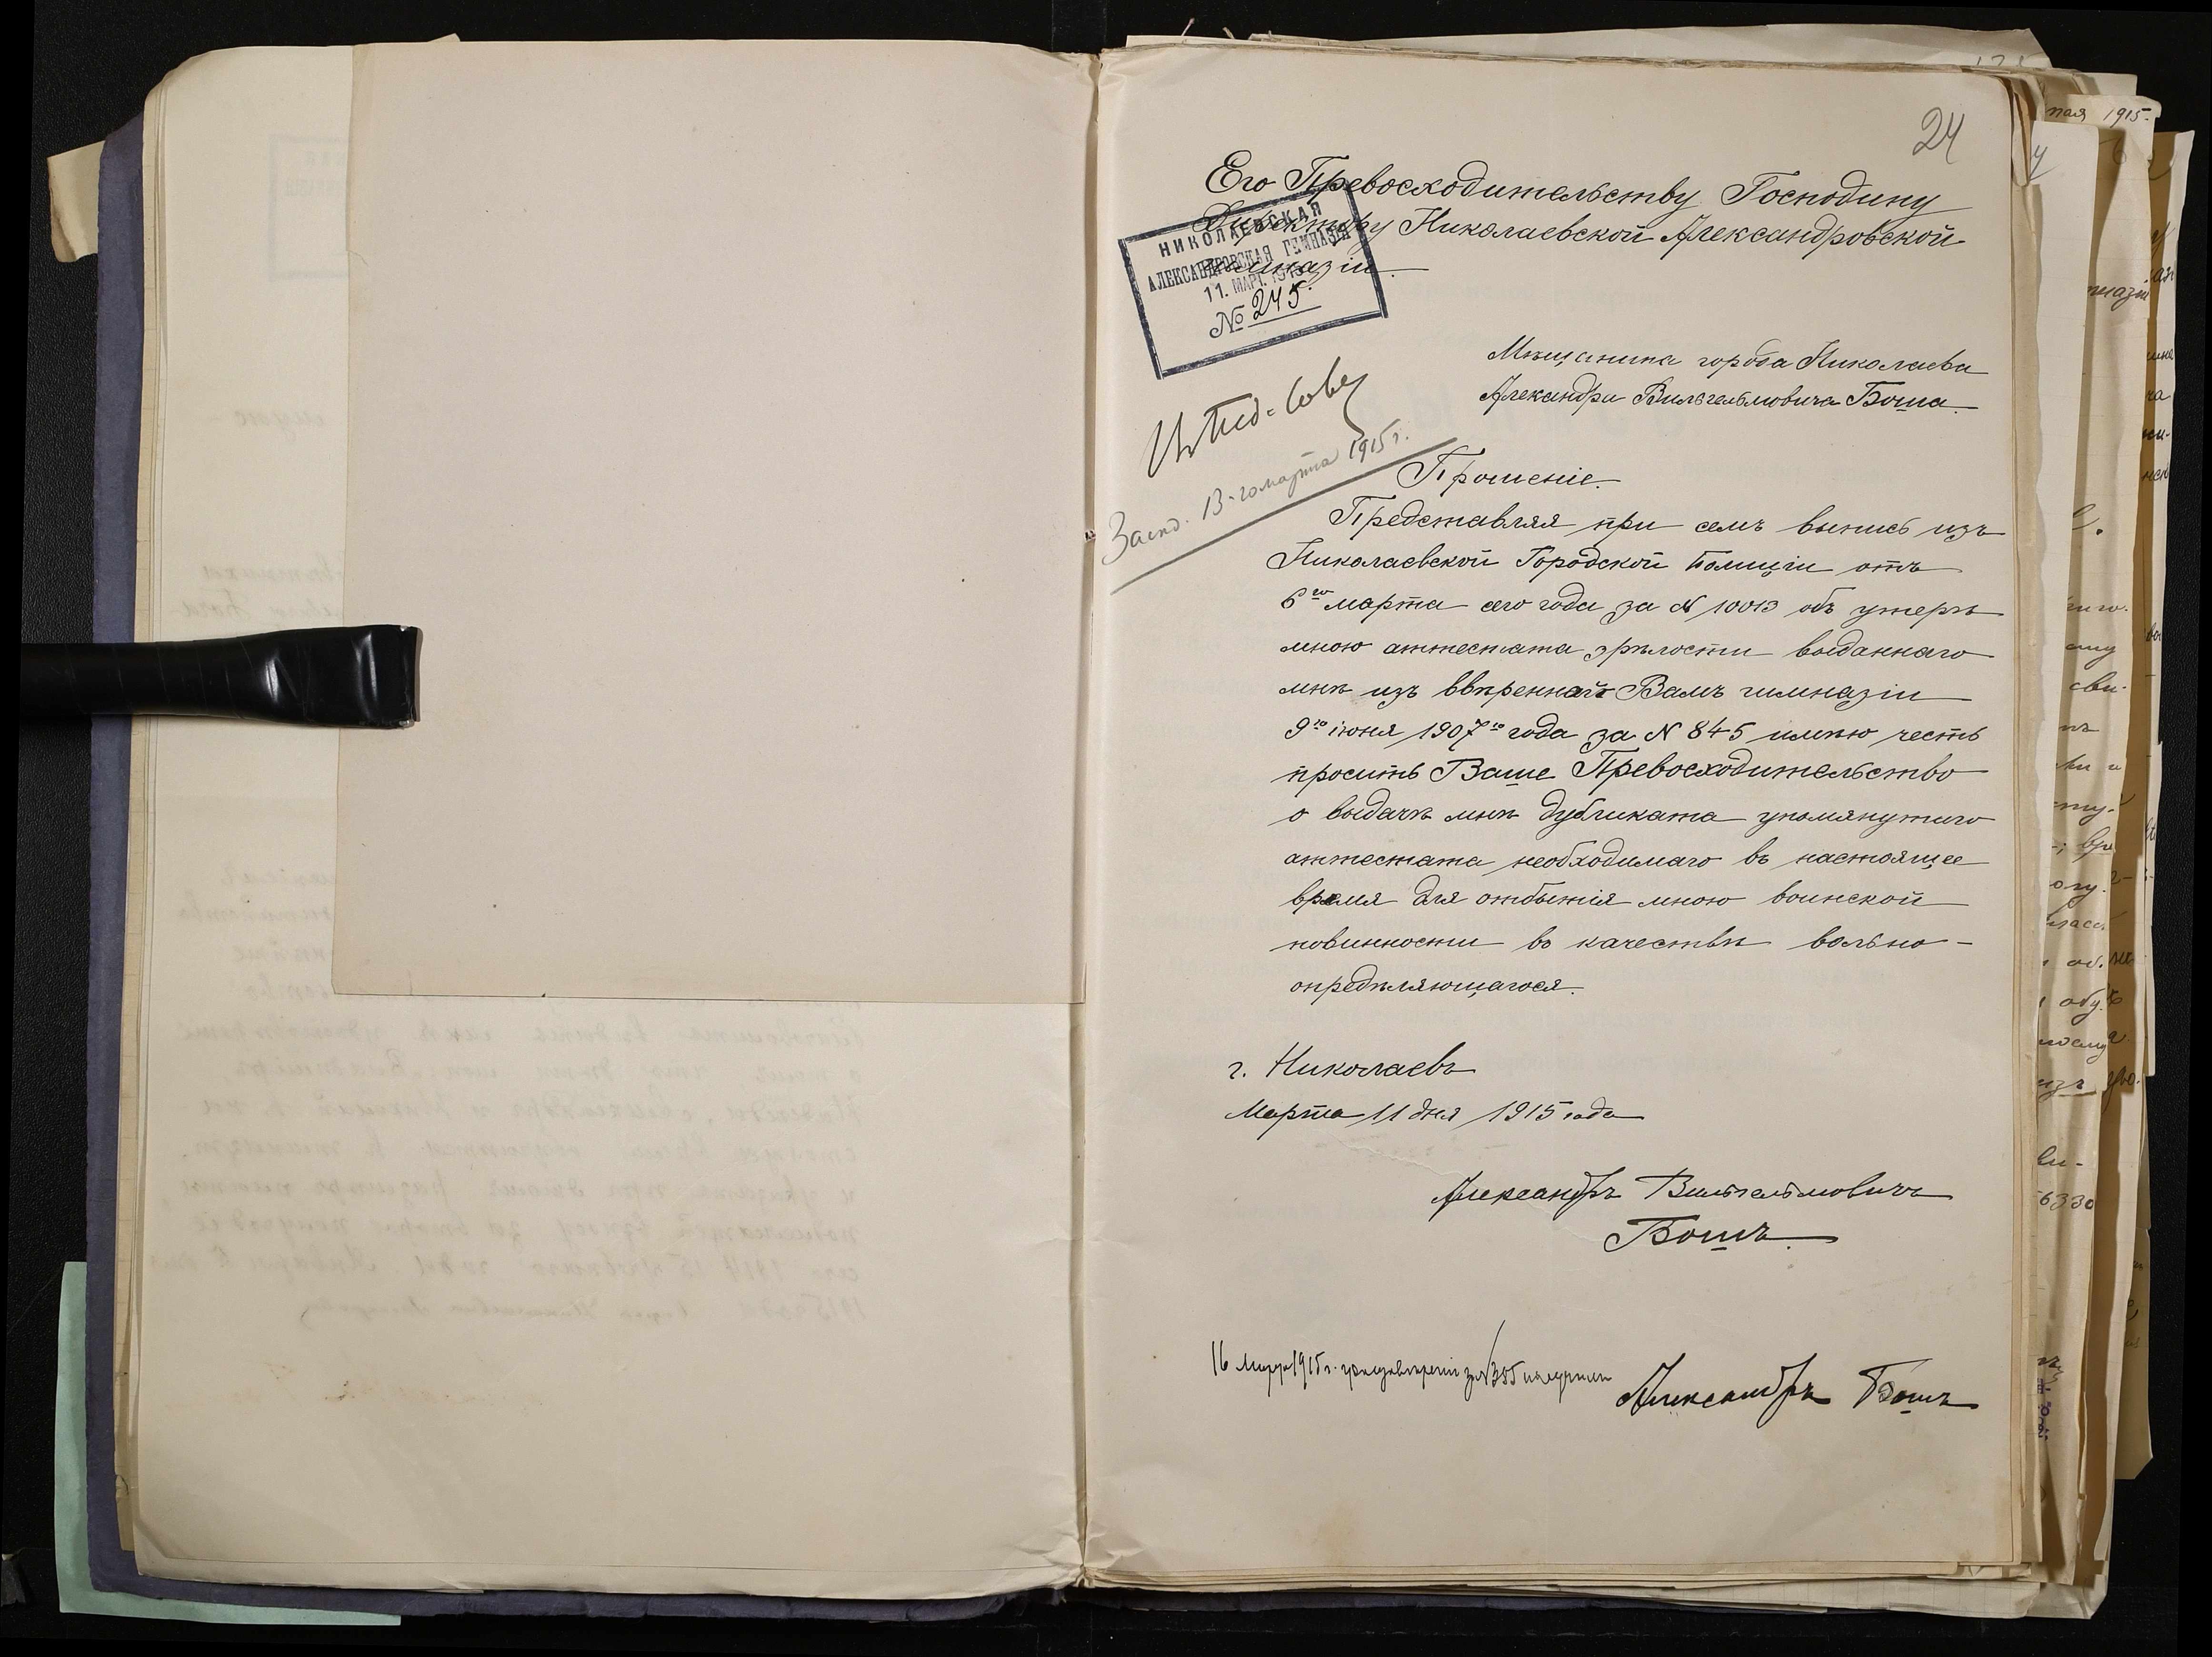 24
Его Превосходительству Господину
Директору Николаевской Александровской
Гимназіи.
НИКОЛАЕВСКАЯ
АЛЕКСАНДРОВСКАЯ ГИМНАЗІЯ
11. МАРТ. 1915
№ 245.
Мѣщанина города Николаева
Александра Вильгельмовича Боша.
Засѣд. 13-го марта 1915 г.
Прошеніе.
Представляя при семъ выпись изъ
Николаевской Городской Полиціи отъ
6го марта сего года за N 10013 объ утерѣ
мною аттестата зрѣлости выданнаго
мнѣ изъ ввѣренной Вамъ гимназіи
9го іюня 1907го года за N 845 имѣю честь
просить Ваше Превосходительство
о выдачѣ мнѣ дубликата упомянутаго
аттестата необходимаго въ настоящее
время для отбытія мною воинской
повинности въ качествѣ вольно-
опредѣляющагося.
г. Николаевъ
Марта 11 дня 1915 года
Александръ Вильгельмовичъ
Бошъ.
16 Марта 1915 г. за № 355 получилъ
Александръ Бошъ
мая 1915.
6330